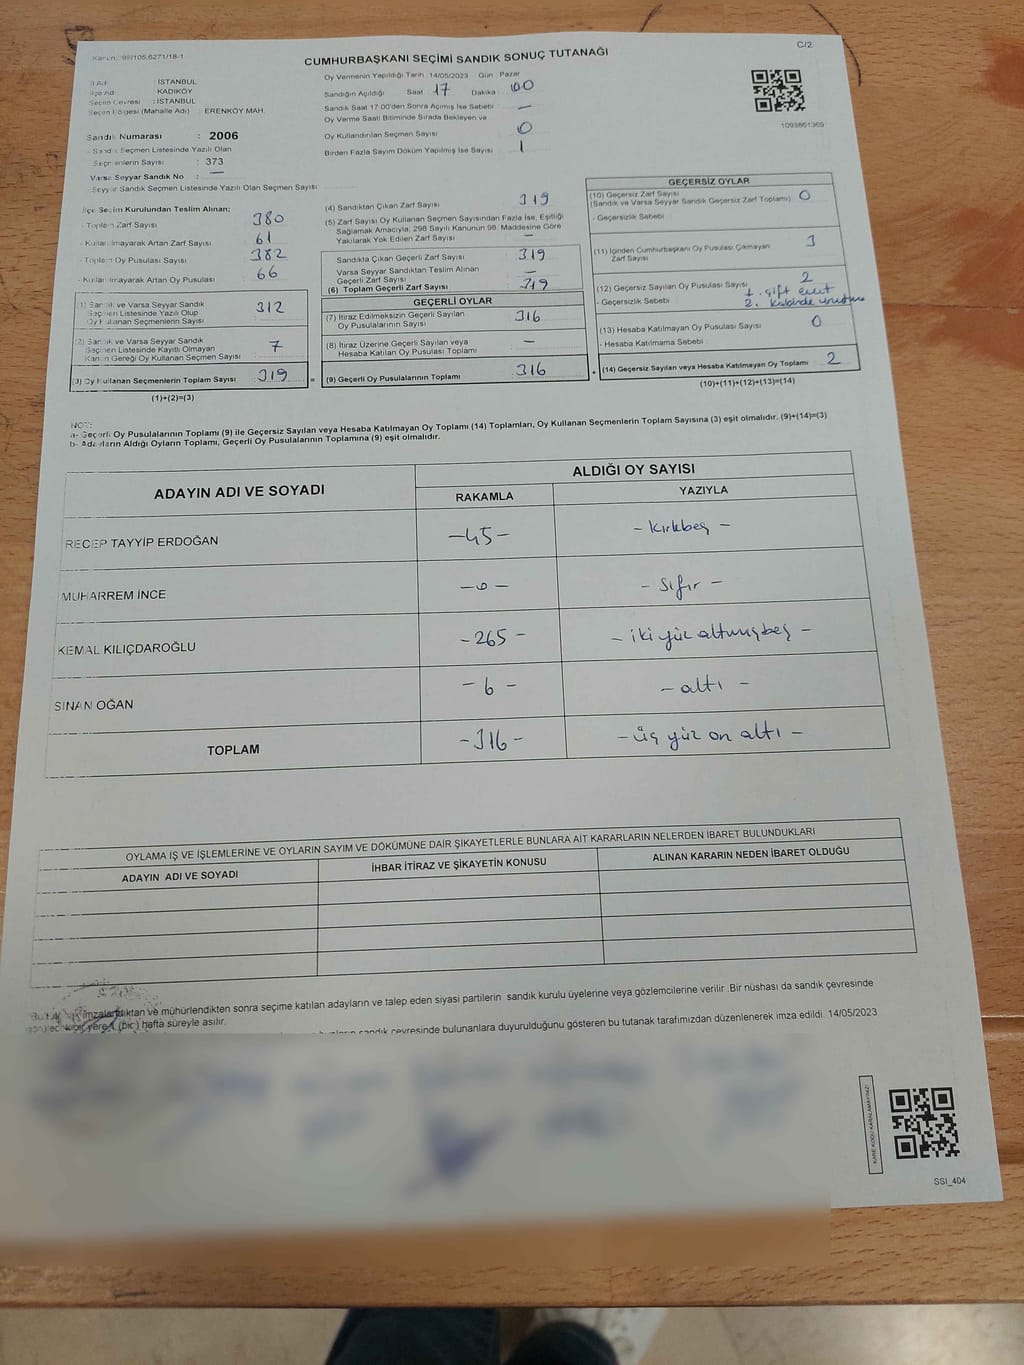 C/2
CUMHURBAŞKANI SEÇİMİ SANDIK SONUÇ TUTANAĞI
İSTANBUL
KADIKÖY
Seçim Çevresi : İSTANBUL
Seçim Bölgesi (Mahalle Adı) : ERENKÖY MAH.
Sandık Numarası : 2006
Sandık Seçmen Listesinde Yazılı Olan
Seçmenlerin Sayısı : 373
Varsa Seyyar Sandık No : —
Seyyar Sandık Seçmen Listesinde Yazılı Olan Seçmen Sayısı:
Oy Vermenin Yapıldığı Tarih :14/05/2023 Gün : Pazar
Sandığın Açıldığı Saat 17 Dakika 00
Sandık Saat 17.00'den Sonra Açılmış İse Sebebi —
Oy Verme Saati Bitiminde Sırada Bekleyen ve
Oy Kullandırılan Seçmen Sayısı 0
Birden Fazla Sayım Döküm Yapılmış İse Sayısı 1
1093861369
İlçe Seçim Kurulundan Teslim Alınan;
- Toplam Zarf Sayısı 380
- Kullanılmayarak Artan Zarf Sayısı 61
- Toplam Oy Pusulası Sayısı 382
- Kullanılmayarak Artan Oy Pusulası 66
(1) Sandık ve Varsa Seyyar Sandık
Seçmen Listesinde Yazılı Olup
Oy Kullanan Seçmenlerin Sayısı 312
(2) Sandık ve Varsa Seyyar Sandık
Seçmen Listesinde Kayıtlı Olmayan
Kanun Gereği Oy Kullanan Seçmen Sayısı 7
(3) Oy Kullanan Seçmenlerin Toplam Sayısı 319
(1)+(2)=(3)
(4) Sandıktan Çıkan Zarf Sayısı 319
(5) Zarf Sayısı Oy Kullanan Seçmen Sayısından Fazla İse, Eşitliği
Sağlamak Amacıyla; 298 Sayılı Kanunun 98. Maddesine Göre
Yakılarak Yok Edilen Zarf Sayısı —
Sandıkta Çıkan Geçerli Zarf Sayısı 319
Varsa Seyyar Sandıktan Teslim Alınan
Geçerli Zarf Sayısı —
(6) Toplam Geçerli Zarf Sayısı 319
GEÇERLİ OYLAR
(7) İtiraz Edilmeksizin Geçerli Sayılan
Oy Pusulalarının Sayısı 316
(8) İtiraz Üzerine Geçerli Sayılan veya
Hesaba Katılan Oy Pusulası Toplamı —
= (9) Geçerli Oy Pusulalarının Toplamı 316
GEÇERSİZ OYLAR
(10) Geçersiz Zarf Sayısı
(Sandık ve Varsa Seyyar Sandık Geçersiz Zarf Toplamı) 0
- Geçersizlik Sebebi
(11) İçinden Cumhurbaşkanı Oy Pusulası Çıkmayan
Zarf Sayısı 3
(12) Geçersiz Sayılan Oy Pusulası Sayısı 2
- Geçersizlik Sebebi 1. çift evet
2. Kabinde
(13) Hesaba Katılmayan Oy Pusulası Sayısı 0
- Hesaba Katılmama Sebebi
+ (14) Geçersiz Sayılan veya Hesaba Katılmayan Oy Toplamı 2
(10)+(11)+(12)+(13)=(14)
NOT:
a- Geçerli Oy Pusulalarının Toplamı (9) ile Geçersiz Sayılan veya Hesaba Katılmayan Oy Toplamı (14) Toplamları, Oy Kullanan Seçmenlerin Toplam Sayısına (3) eşit olmalıdır. (9)+(14)=(3)
b- Adayların Aldığı Oyların Toplamı, Geçerli Oy Pusulalarının Toplamına (9) eşit olmalıdır.
ADAYIN ADI VE SOYADI
ALDIĞI OY SAYISI
RAKAMLA YAZIYLA
RECEP TAYYİP ERDOĞAN -45- - kırkbeş -
MUHARREM İNCE -0- - sıfır -
KEMAL KILIÇDAROĞLU -265- - iki yüz altmışbeş -
SİNAN OĞAN -6- - altı -
TOPLAM -316- - üç yüz on altı -
OYLAMA İŞ VE İŞLEMLERİNE VE OYLARIN SAYIM VE DÖKÜMÜNE DAİR ŞİKAYETLERLE BUNLARA AİT KARARLARIN NELERDEN İBARET BULUNDUKLARI
ADAYIN ADI VE SOYADI İHBAR İTİRAZ VE ŞİKAYETİN KONUSU ALINAN KARARIN NEDEN İBARET OLDUĞU
imzalandıktan ve mühürlendikten sonra seçime katılan adayların ve talep eden siyasi partilerin sandık kurulu üyelerine veya gözlemcilerine verilir. Bir nüshası da sandık çevresinde
yere 1 (bir) hafta süreyle asılır.
sandık çevresinde bulunanlara duyurulduğunu gösteren bu tutanak tarafımızdan düzenlenerek imza edildi. 14/05/2023
KARE KODU KARALAMAYINIZ!
SSI_404